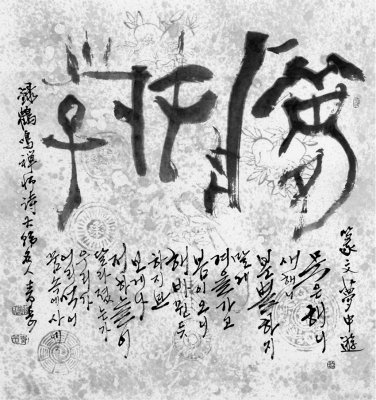 夢中遊
篆文夢中遊
묵은해니
새해니
분별하지
말게
겨울가고
봄이오니
해바뀐듯
하지만
보게나
저하늘이
달라졌는가
우리가
어리석어
꿈속에사네
録鶴鳴禪師詩